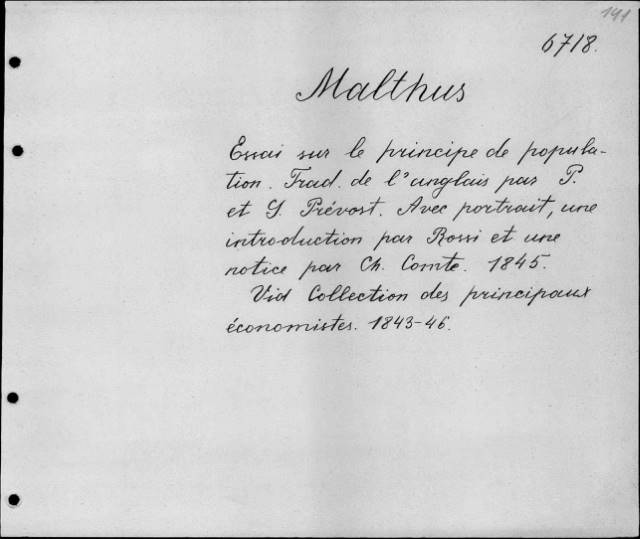 141
6718.
Malthus
Essai sur le principe de popula-
tion. Trad. de l'anglais par P.
et G. Prévost. Avec portrait, une
introduction par Rossi et une
notice par Ch. Comte. 1845.
Vid Collection des principaux
économistes. 1843-46.